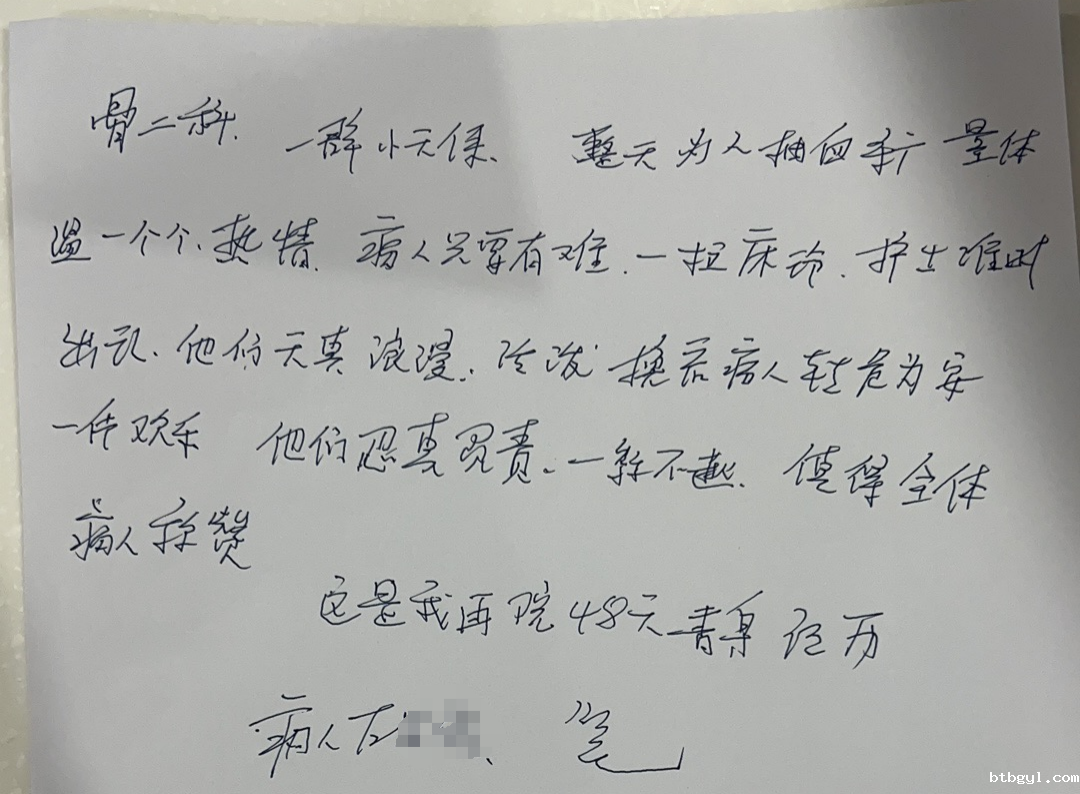 骨二科、一群小天使、整天为人抽血 量体
温一个个、热情、病人只要有难、一拉床铃、护士准时
出现、他们天真浪漫、活泼 换来病人转危为安
一片欢乐 他们认真负责、一丝不苟、值得全体
病人称赞
这是我再院48天亲身经历
病人左 笔
btbgyl.com